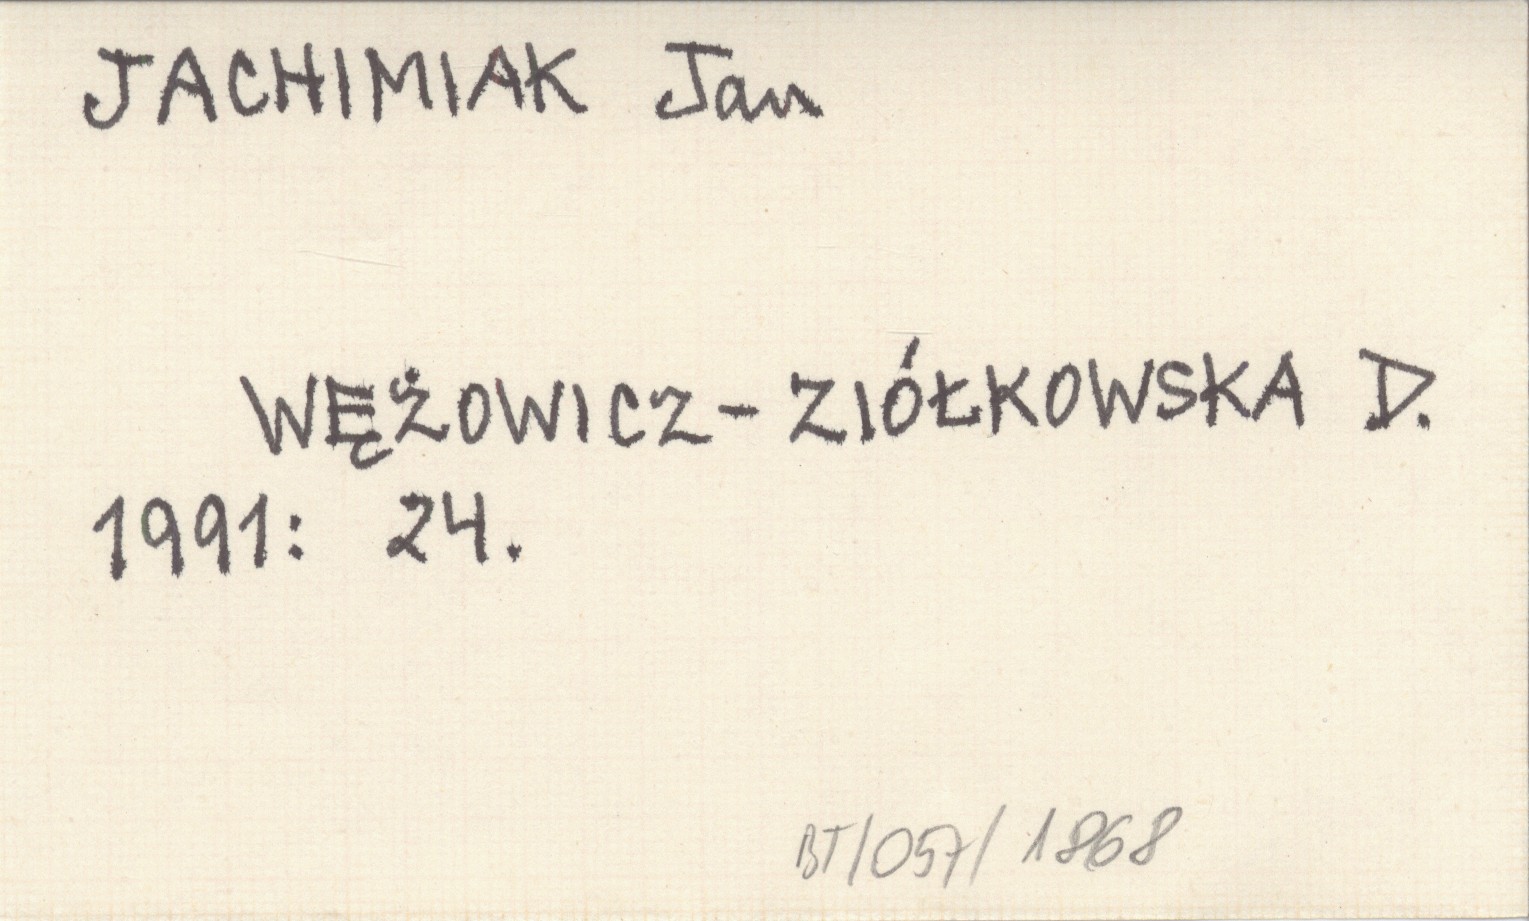 JACHIMIAK Jan
WĘŻOWICZ-ZIÓŁKOWSKA D.
1991: 24.
BT/057/1868